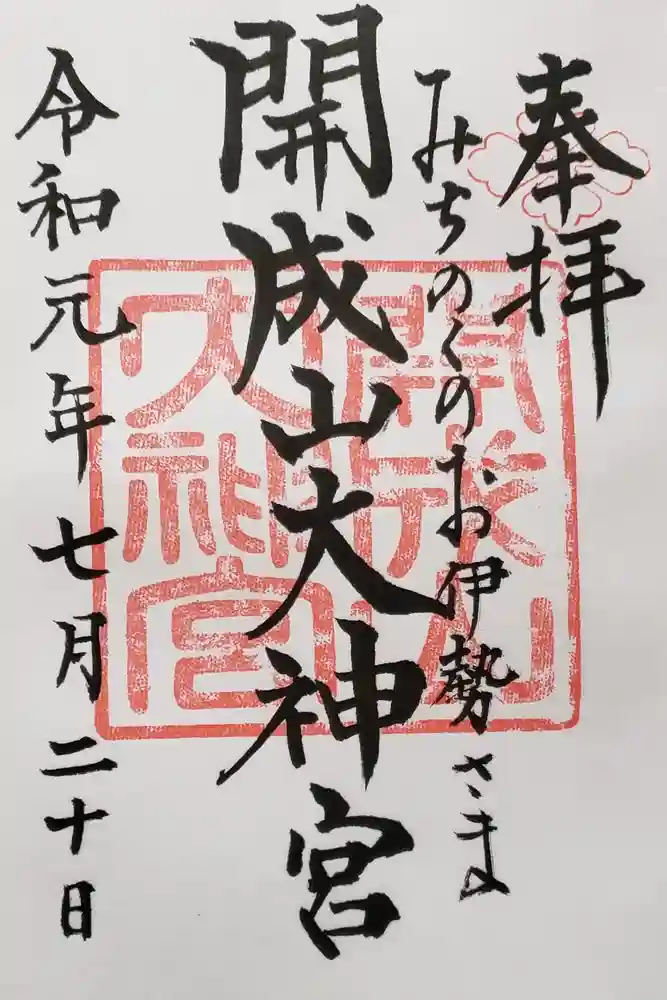 奉拝
みちのくのお伊勢さま
開成山大神宮
開成山
大神宮
令和元年七月二十日